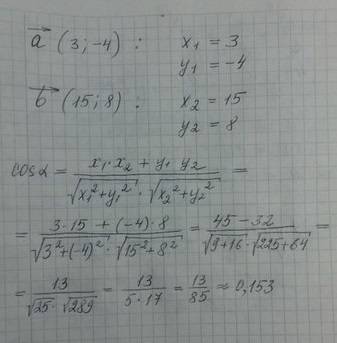 a⃗ (3; -4) : x₁ = 3
y₁ = -4
b⃗ (15; 8) : x₂ = 15
y₂ = 8
cos α = (x₁·x₂ + y₁ y₂) / (√(x₁² + y₁²) · √(x₂² + y₂²)) =
= (3·15 + (-4)·8) / (√(3² + (-4)²) · √(15² + 8²)) = (45 - 32) / (√(9+16) · √(225+64)) =
= 13 / (√25 · √289) = 13 / (5·17) = 13/85 ≈ 0,153